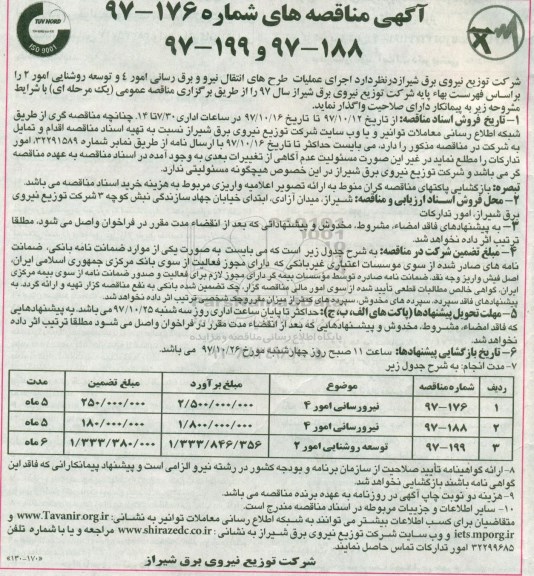 آگهی مناقصه های شماره ۱۷۶-۹۷
۱۸۸-۹۷ و ۱۹۹-۹۷
TUV NORD
ISO 9001
شرکت توزیع نیروی برق شیراز درنظردارد اجرای عملیات طرح های انتقال نیرو و برق رسانی امور ٤ و توسعه روشنایی امور ۲ را
براساس فهرست بهاء پایه شرکت توزیع نیروی برق شیراز سال ۹۷ را از طریق برگزاری مناقصه عمومی (یک مرحله ای) با شرایط
مشروحه زیر به پیمانکار دارای صلاحیت واگذار نماید.
۱- تاریخ فروش اسناد مناقصه: از تاریخ ۹۷/۱۰/۱۲ تا تاریخ ۹۷/۱۰/۱۶ در ساعات اداری ۷/۳۰تا ۱۴. چنانچه مناقصه گری از طریق
شبکه اطلاع رسانی معاملات توانیر و یا وب سایت شرکت توزیع نیروی برق شیراز نسبت به تهیه اسناد مناقصه اقدام و تمایل
به شرکت در مناقصه مذکور را دارد، می بایست حداکثر تا تاریخ ۹۷/۱۰/۱۶ با ارسال نامه از طریق نمابر شماره ۳۲۲۹۱۵۸۹، امور
تدارکات را مطلع نماید در غیر این صورت مسئولیت عدم آگاهی از تغییرات بعدی به وجود آمده در اسناد مناقصه به عهده مناقصه
گر می باشد و شرکت توزیع نیروی برق شیراز در این خصوص هیچگونه مسئولیتی ندارد.
تبصره: بازگشایی پاکتهای مناقصه گران منوط به ارائه تصویر اعلامیه واریزی مربوط به هزینه خرید اسناد مناقصه می باشد.
۲- محل فروش اسناد ارزیابی و مناقصه: شیراز، میدان آزادی، ابتدای خیابان جهاد سازندگی نبش کوچه ۳ شرکت توزیع نیروی
برق شیراز، امور تدارکات
۳- به پیشنهادهای فاقد امضاء، مشروط، مخدوش و پیشنهاداتی که بعد از انقضاء مدت مقرر در فراخوان واصل می شود، مطلقا
ترتیب اثر داده نخواهد شد.
۴- مبلغ تضمین شرکت در مناقصه: به شرح جدول زیر است که می بایست به صورت یکی از موارد ضمانت نامه بانکی، ضمانت
نامه های صادر شده از سوی موسسات اعتباری غیربانکی که دارای مجوز فعالیت از سوی بانک مرکزی جمهوری اسلامی ایران،
اصل فیش واریز وجه نقد، ضمانت نامه صادره توسط مؤسسات بیمه گر دارای مجوز لازم برای فعالیت و صدور ضمانت نامه از سوی بیمه مرکزی
ایران، گواهی خالص مطالبات قطعی تأیید شده از سوی امور مالی مناقصه گزار، چک تضمین شده بانکی به نفع مناقصه گزار تهیه و ارائه گردد. به
پیشنهادهای فاقد سپرده، سپرده های مخدوش، سپرده های کمتر از میزان مقرر و چک شخصی ترتیب اثر داده نخواهد شد.
۵- مهلت تحویل پیشنهادها (پاکت های الف، ب، ج): حداکثر تا پایان ساعت اداری روز سه شنبه ۹۷/۱۰/۲۵ می باشد. به پیشنهادهایی
که فاقد امضاء، مشروط، مخدوش و پیشنهادهایی که بعد از انقضاء مدت مقرر در فراخوان واصل می شود مطلقا ترتیب اثر داده
نخواهد شد.
۶- تاریخ بازگشایی پیشنهادها: ساعت ۱۱ صبح روز چهارشنبه مورخ ۹۷/۱۰/۲۶ می باشد.
۷- مدت انجام: به شرح جدول زیر
ردیف شماره مناقصه موضوع مبلغ برآورد مبلغ تضمین مدت
۱ ۹۷-۱۷۶ نیرورسانی امور ۴ ۲/۵۰۰/۰۰۰/۰۰۰ ۲۵۰/۰۰۰/۰۰۰ ۵ ماه
۲ ۹۷-۱۸۸ نیرورسانی امور ۴ ۱/۸۰۰/۰۰۰/۰۰۰ ۱۸۰/۰۰۰/۰۰۰ ۵ ماه
۳ ۹۷-۱۹۹ توسعه روشنایی امور ۲ ۱/۳۳۳/۸۴۶/۳۵۶ ۱/۳۳۳/۳۸۰/۰۰۰ ۶ ماه
۸- ارائه گواهینامه تأیید صلاحیت از سازمان برنامه و بودجه کشور در رشته نیرو الزامی است و پیشنهاد پیمانکارانی که فاقد این
گواهی نامه باشند بازگشایی نخواهد شد.
۹- هزینه دو نوبت چاپ آگهی در روزنامه به عهده برنده مناقصه می باشد.
۱۰- سایر اطلاعات و جزییات مربوطه در اسناد مناقصه مندرج است.
متقاضیان برای کسب اطلاعات بیشتر می توانند به شبکه اطلاع رسانی معاملات توانیر به نشانی: www.Tavanir.org.ir و
iets.mporg.ir و وب سایت شرکت توزیع نیروی برق شیراز به نشانی: www.shirazedc.co.ir مراجعه و یا با شماره تلفن
۳۲۲۹۹۶۸۵ امور تدارکات تماس حاصل نمایند.
شرکت توزیع نیروی برق شیراز
(۱۳۰-۱۷۰)